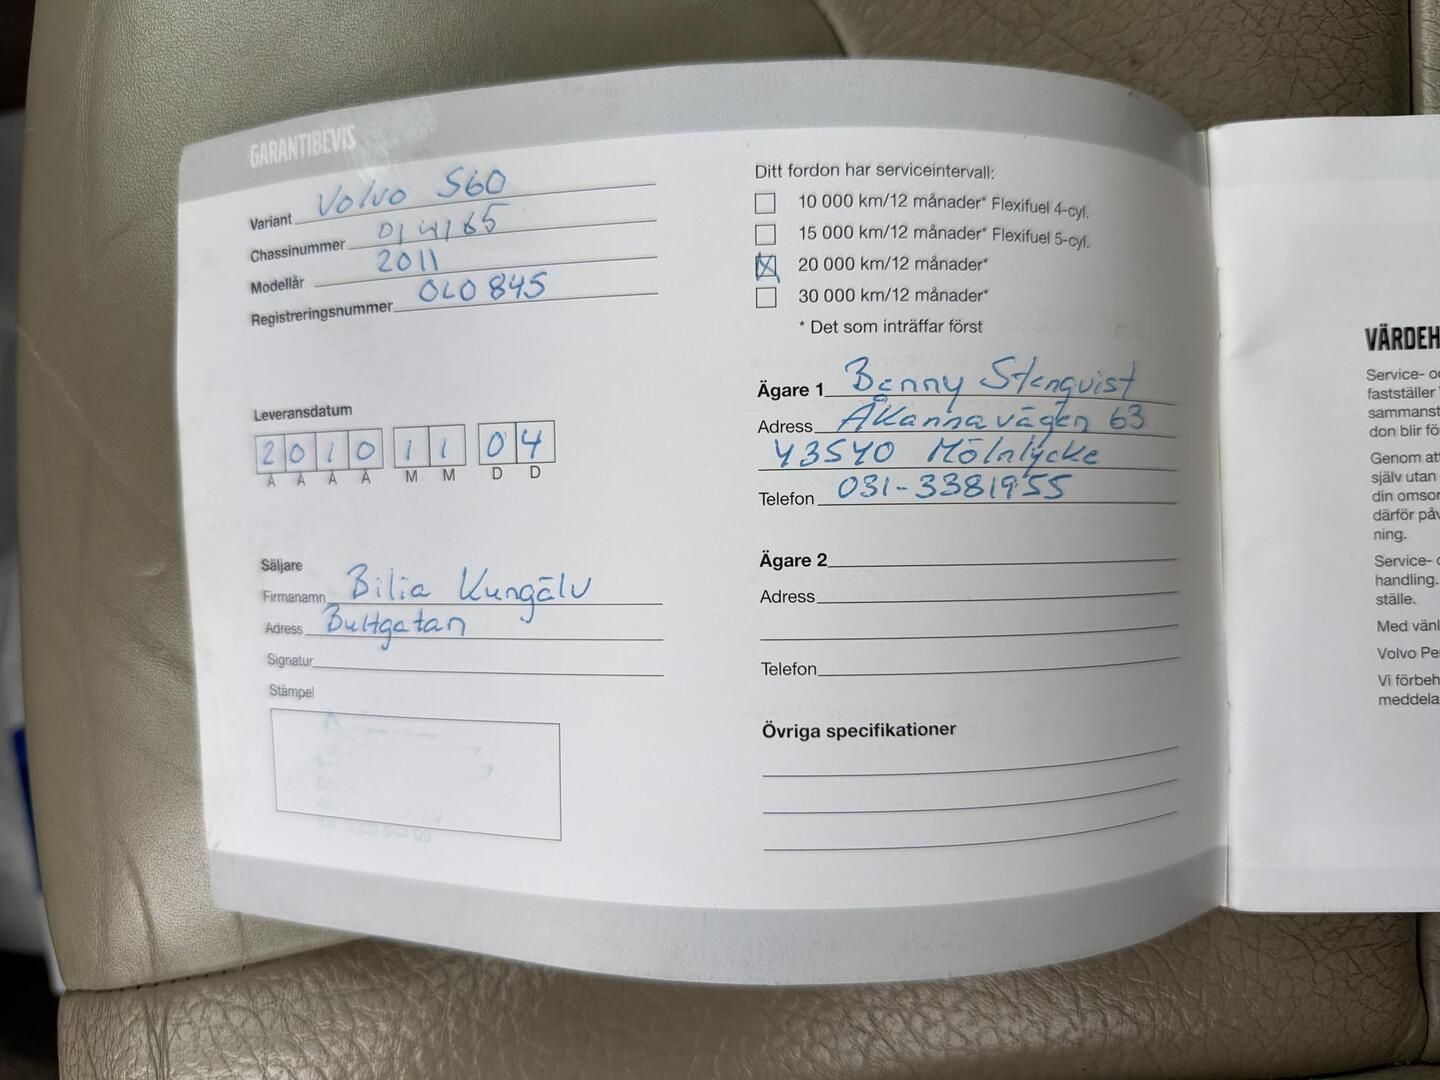 GARANTIBEVIS
Variant Volvo S60
Chassinummer 014165
Modellår 2011
Registreringsnummer OLO 845
Leveransdatum
2 0 1 0 1 1 0 4
Å Å Å Å M M D D
Säljare
Firmanamn Bilia Kungälv
Adress Bultgatan
Signatur
Stämpel
Ditt fordon har serviceintervall:
10 000 km/12 månader* Flexifuel 4-cyl.
15 000 km/12 månader* Flexifuel 5-cyl.
20 000 km/12 månader*
30 000 km/12 månader*
* Det som inträffar först
Ägare 1 Benny Stenqvist
Adress Åkannavägen 63
43540 Mölnlycke
Telefon 031-3381955
Ägare 2
Adress
Telefon
Övriga specifikationer
VÄRDEH
Service-
fastställer
sammanst
don blir fö
Genom att
själv utan
din omsor
därför påv
ning.
Service-
handling.
ställe.
Med vänl
Volvo Pe
Vi förbeh
meddela